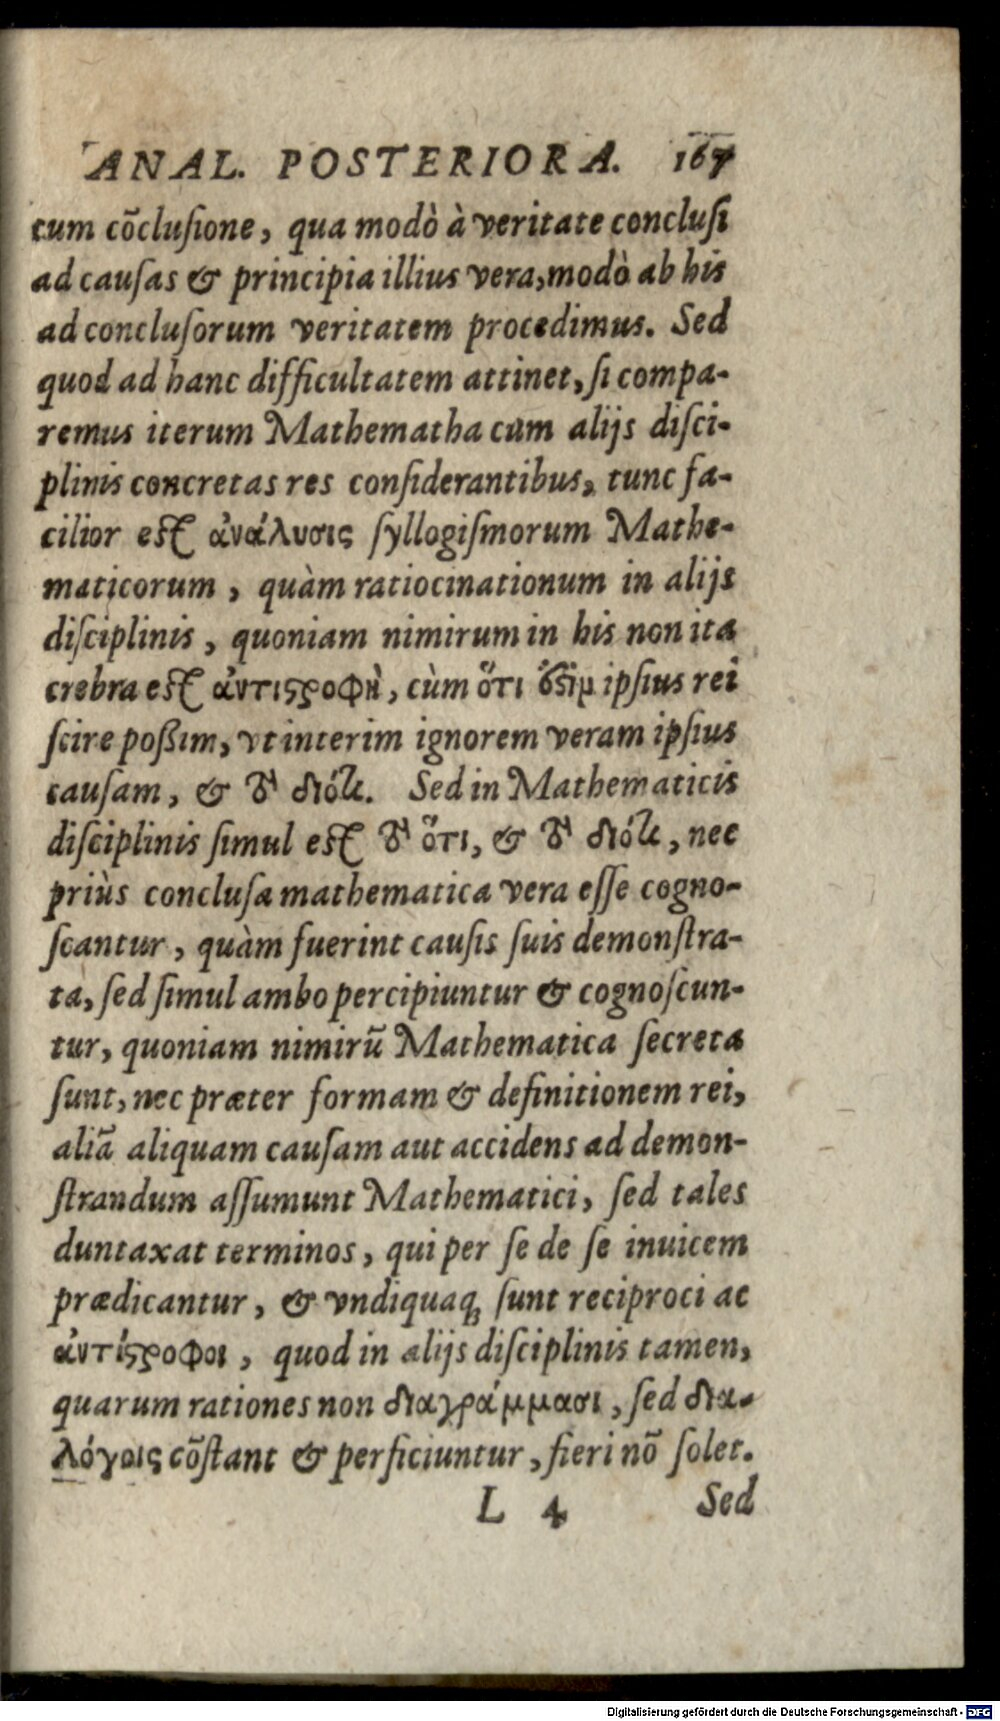 ANAL. POSTERIORA. 167
tum cōclusione, qua modò à veritate conclusi
ad causas & principia illius vera, modò ab his
ad conclusorum veritatem procedimus. Sed
quod ad hanc difficultatem attinet, si compa-
remus iterum Mathematha cum alijs disci-
plinis concretas res considerantibus, tunc fa-
cilior est ἀνάλυσις syllogismorum Mathe-
maticorum, quàm ratiocinationum in alijs
disciplinis, quoniam nimirum in his non ita
crebra est ἀντιϛροφὴ, cùm ὅτι ipsius rei
scire poßim, vt interim ignorem veram ipsius
causam, & τὸ διότι. Sed in Mathematicis
disciplinis simul est τὸ ὅτι, & τὸ διότι, nec
priùs conclusa mathematica vera esse cogno-
scantur, quàm fuerint causis suis demonstra-
ta, sed simul ambo percipiuntur & cognoscun-
tur, quoniam nimirū Mathematica secreta
sunt, nec præter formam & definitionem rei,
aliā aliquam causam aut accidens ad demon-
strandum assumunt Mathematici, sed tales
duntaxat terminos, qui per se de se inuicem
prædicantur, & vndiquaq; sunt reciproci ac
ἀντίϛροφοι, quod in alijs disciplinis tamen,
quarum rationes non διαγράμμασι, sed δια-
λόγοις cōstant & perficiuntur, fieri nō solet.
L 4 Sed
Digitalisierung gefördert durch die Deutsche Forschungsgemeinschaft - DFG